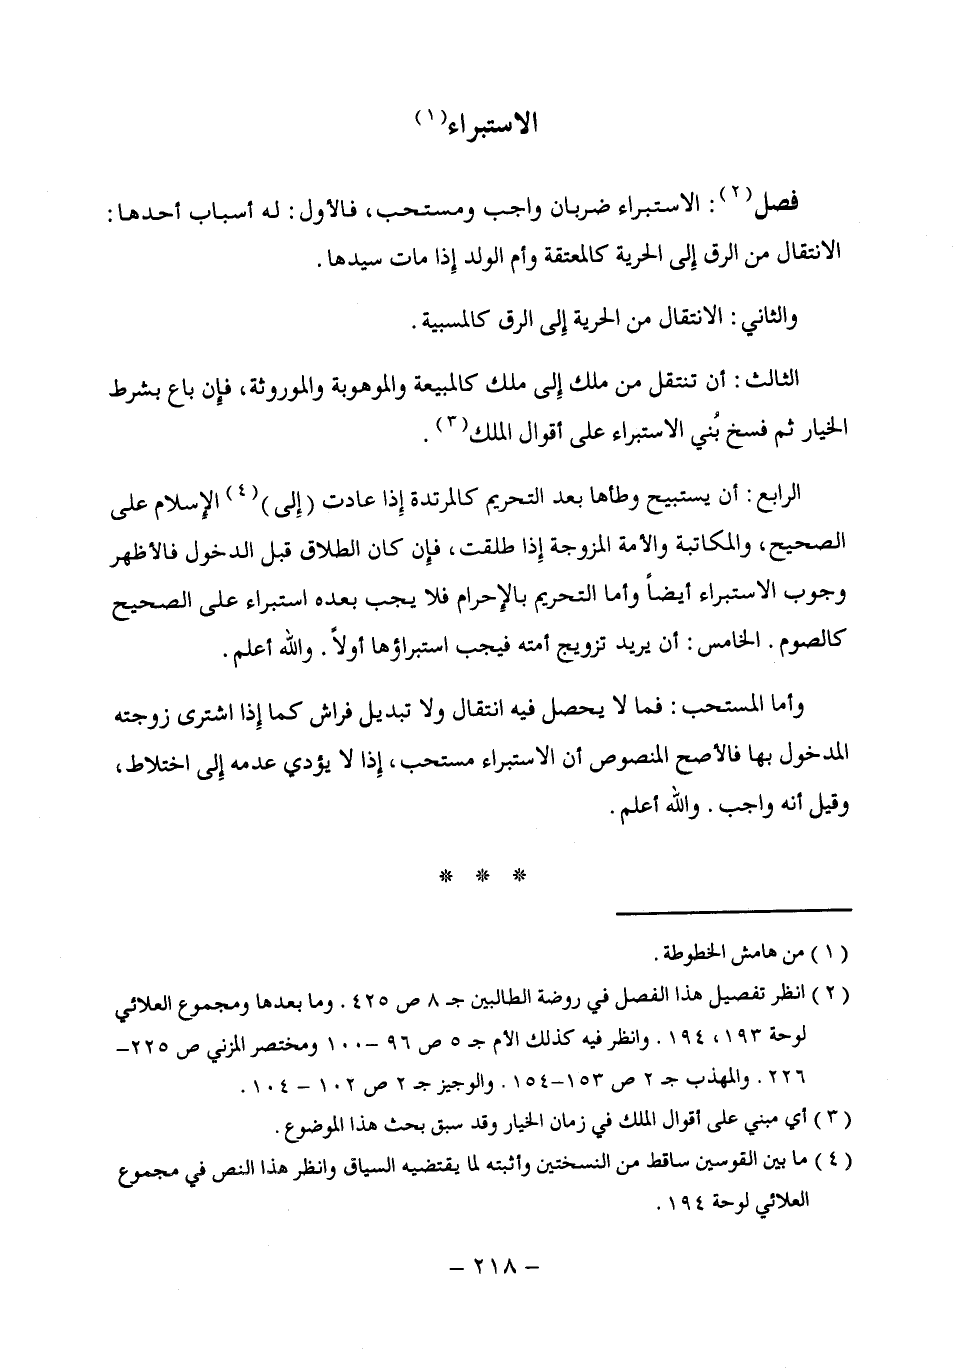 الاستبراء(١)
فصل(٢): الاستبراء ضربان واجب ومستحب، فالأول: له أسباب أحدها:
الانتقال من الرق إلى الحرية كالمعتقة وأم الولد إذا مات سيدها.
والثاني: الانتقال من الحرية إلى الرق كالمسبية.
الثالث: أن تنتقل من ملك إلى ملك كالمبيعة والموهوبة والموروثة، فإن باع بشرط
الخيار ثم فسخ بُني الاستبراء على أقوال الملك(٣).
الرابع: أن يستبيح وطأها بعد التحريم كالمرتدة إذا عادت (إلى)(٤) الإسلام على
الصحيح، والمكاتبة والأمة المزوجة إذا طلقت، فإن كان الطلاق قبل الدخول فالأظهر
وجوب الاستبراء أيضاً وأما التحريم بالإحرام فلا يجب بعده استبراء على الصحيح
كالصوم. الخامس: أن يريد تزويج أمته فيجب استبراؤها أولاً. والله أعلم.
وأما المستحب: فما لا يحصل فيه انتقال ولا تبديل فراش كما إذا اشترى زوجته
المدخول بها فالأصح المنصوص أن الاستبراء مستحب، إذا لا يؤدي عدمه إلى اختلاط،
وقيل أنه واجب. والله أعلم.
* * *
(١) من هامش الخطوطة.
(٢) انظر تفصيل هذا الفصل في روضة الطالبين جـ ٨ ص ٤٢٥. وما بعدها ومجموع العلائي
لوحة ١٩٣، ١٩٤. وانظر فيه كذلك الأم جـ ٥ ص ٩٦ -١٠٠ ومختصر المزني ص ٢٢٥-
٢٢٦. والمهذب جـ ٢ ص ١٥٣-١٥٤. والوجيز جـ ٢ ص ١٠٢ - ١٠٤.
(٣) أي مبني على أقوال الملك في زمان الخيار وقد سبق بحث هذا الموضوع.
(٤) ما بين القوسين ساقط من النسختين وأثبته لما يقتضيه السياق وانظر هذا النص في مجموع
العلائي لوحة ١٩٤.
- ٢١٨ -